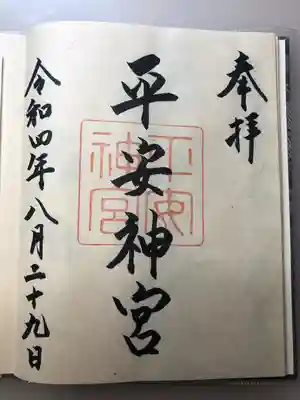 奉拝
平安神宮
平安
神宮
令和四年八月二十九日